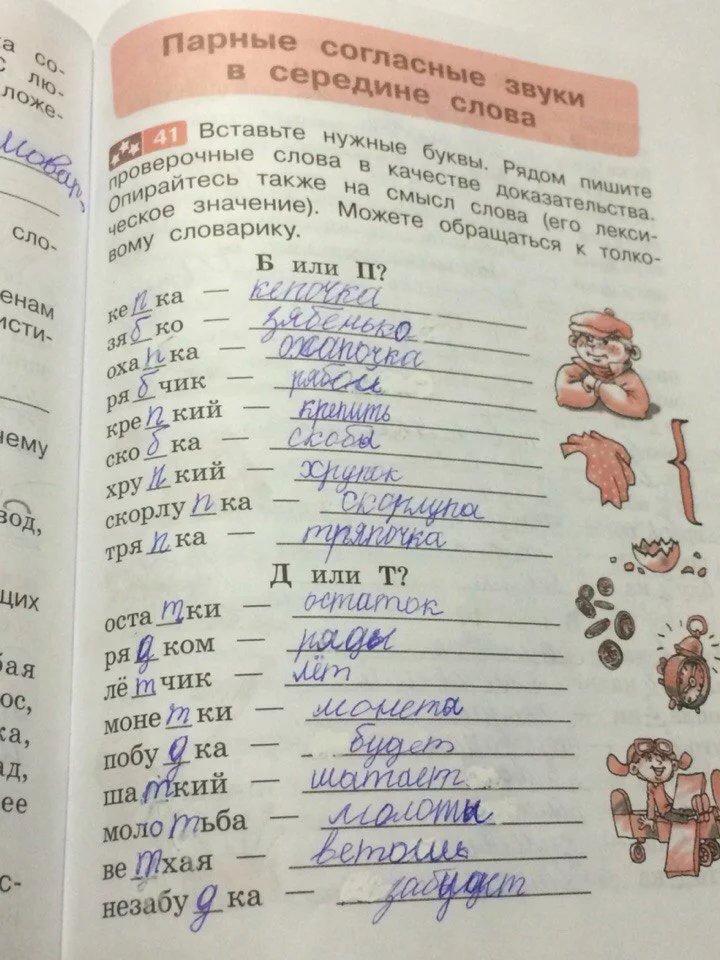 та со-
С лю-
ложе-
сло-
енам
исти-
чему
вод,
щих
бая
ос,
ка,
ад,
ее
с-
Парные согласные звуки
в середине слова
41 Вставьте нужные буквы. Рядом пишите
проверочные слова в качестве доказательства.
Опирайтесь также на смысл слова (его лекси-
ческое значение). Можете обращаться к толко-
вому словарику.
Б или П?
кепка — кепочка
зябко — зябенько
охапка — охапочка
рябчик — рябой
крепкий — крепить
скобка — скобы
хрупкий — хрупок
скорлупка — скорлупа
тряпка — тряпочка
Д или Т?
остатки — остаток
рядком — ряды
лётчик — лёт
монетки — монета
побудка — будет
шаткий — шатает
молотьба — молоты
ветхая — ветошь
незабудка — забудет